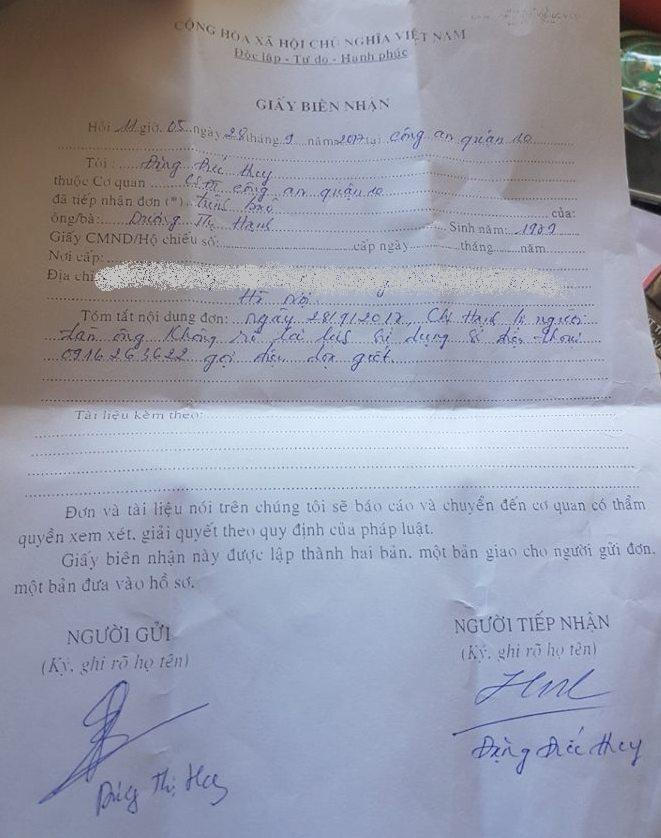 CỘNG HÒA XÃ HỘI CHỦ NGHĨA VIỆT NAM
Độc lập - Tự do - Hạnh phúc
GIẤY BIÊN NHẬN
Hồi 11 giờ 05 ngày 28 tháng 9 năm 2017 tại Công an quận 10
Tôi : Đặng Đức Huy
thuộc Cơ quan công an quận 10
đã tiếp nhận đơn (*) trình báo của:
ông/bà: Dương Thị Hạnh Sinh năm: 1989
Giấy CMND/Hộ chiếu số: cấp ngày tháng năm
Nơi cấp:
Địa chỉ
Hà Nội.
Tóm tắt nội dung đơn: ngày 28/9/2017 Chị Hạnh bị người
đàn ông không rõ lai lịch sử dụng số điện thoại
0916263622 gọi điện dọa giết.
Tài liệu kèm theo:
Đơn và tài liệu nói trên chúng tôi sẽ báo cáo và chuyển đến cơ quan có thẩm
quyền xem xét, giải quyết theo quy định của pháp luật.
Giấy biên nhận này được lập thành hai bản, một bản giao cho người gửi đơn,
một bản đưa vào hồ sơ.
NGƯỜI GỬI
(Ký, ghi rõ họ tên)
NGƯỜI TIẾP NHẬN
(Ký, ghi rõ họ tên)
Đặng Đức Huy